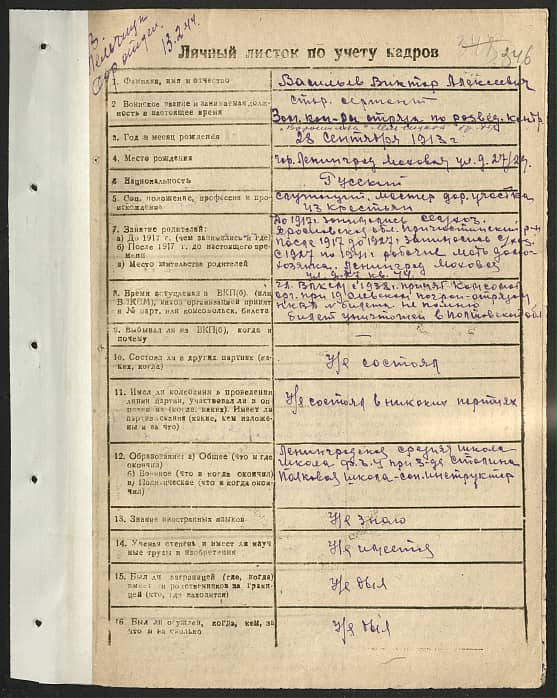 13.2.44.
246
Личный листок по учету кадров
1. Фамилия, имя и отчество
Васильев Виктор Алексеевич
2 Воинское звание и занимаемая долж-
ность в настоящее время
стар. сержант
Зам. ком-ра отряда по развед. контр.
3. Год и месяц рождения
28 сентября 1913 г
4. Место рождения
гор. Ленинград Моховая ул. д. 27/29.
4 Национальность
Русский
5 Соц. положение, профессия и про-
исхождение
служащий. мастер дор. участка
из крестьян
7. Звание родителей:
а) До 1917 г. (чем занимались и где)
б) После 1917 г. до настоящего вре-
мени
в) Место жительства родителей
до 1917 г. занимались сельхоз.
Ярославской обл.
После 1917 до 1927 г. занимались с/хоз.
с 1927 по 1941 г. рабочие мать домо-
хозяйка. Ленинград Моховая
ул. д. 27 кв.
8. Время вступления в ВКП(б) (или
ВЛКСМ), каков организацией принят
и № парт. или комсомольск. билета
чл. ВЛКСМ с 1938. принят Комсомол
орг. при
билет уничтожен в
9. Выбывал ли из ВКП(б), когда и
почему
10. Состоял ли в других партиях (ка-
ких, когда)
Не состоял
11. Имел ли колебания в проведении
линии партии, участвовал ли в оп-
позициях (когда, каких). Имеет ли
партвзыскания (какие, кем наложе-
ны и за что)
Не состоял в никаких партиях
12. Образование: а) Общее (что и где
окончил)
б) Военное (что и когда окончил)
в) Политическое (что и когда окон-
чил)
Ленинградская средняя школа
Школа ф.з.у при з-де Сталина
Полковая школа-сан.инструктор
13. Знание иностранных языков
Не знаю
14. Ученая степень и имеет ли науч-
ные труды и изобретения
Не имеется
15. Был ли заграницей (где, когда)
имеет ли родственников за грани-
цей (кто, где находится)
Не был
16. Был ли осужден, когда, кем, за
что и на сколько
Не был